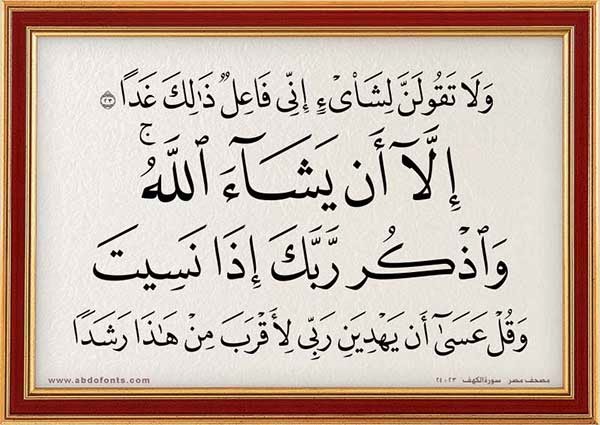 وَلَا تَقُولَنَّ لِشَاْىۡءٍ إِنِّى فَاعِلٌ ذَٰلِكَ غَدًا ۝٢٣
إِلَّآ أَن يَشَآءَ ٱللَّهُۚ
وَٱذۡكُر رَّبَّكَ إِذَا نَسِيتَ
وَقُلۡ عَسَىٰٓ أَن يَهۡدِيَنِ رَبِّى لِأَقۡرَبَ مِنۡ هَٰذَا رَشَدًا
مصحف مصر سورة الكهف ٢٣ : ٢٤
www.abdofonts.com